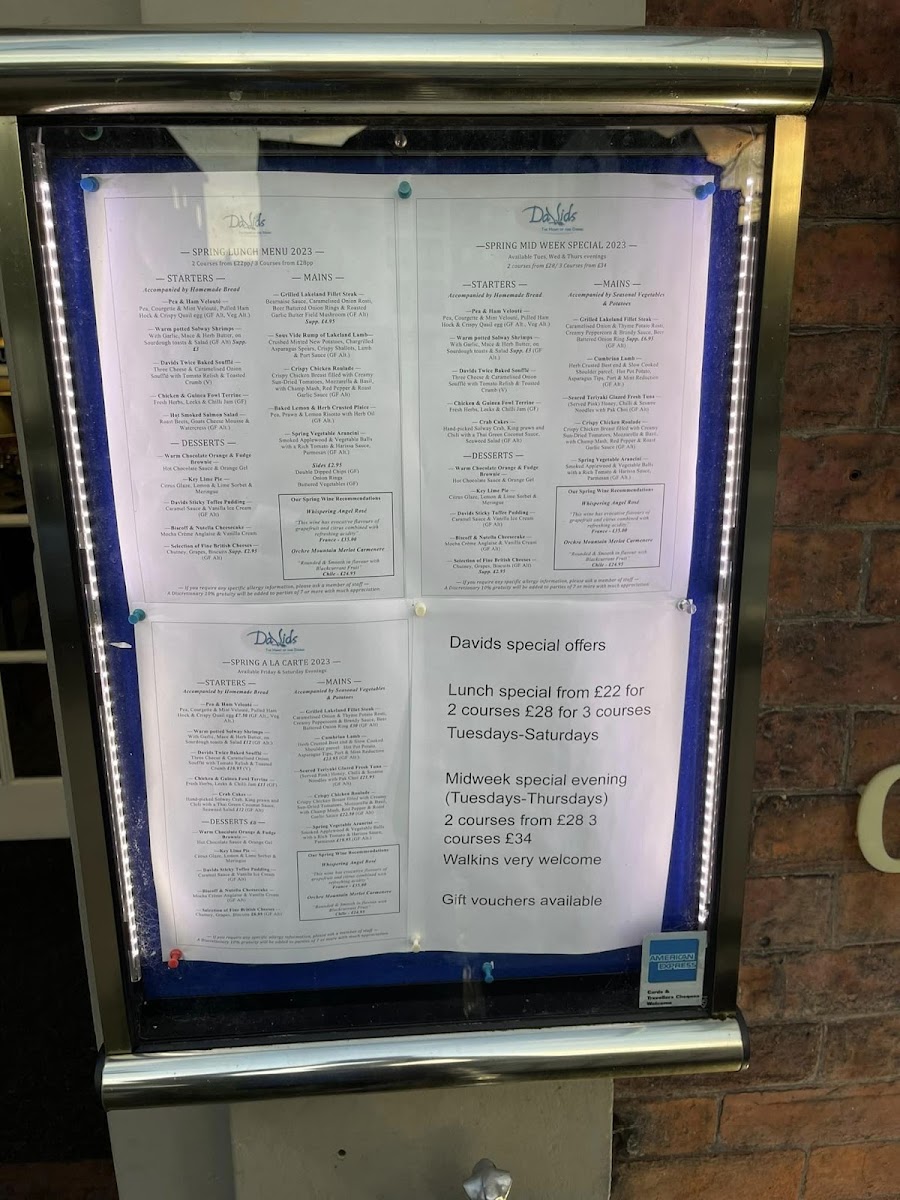 Davids
— SPRING LUNCH MENU 2023 —
2 Courses from £22pp/ 3 Courses from £28pp
— STARTERS —
Accompanied by Homemade Bread
—Pea & Ham Velouté —
Pea, Courgette & Mint Velouté, Pulled Ham
Hock & Crispy Quail egg (GF Alt, Veg Alt.)
— Warm potted Solway Shrimps—
With Garlic, Mace & Herb Butter, on
Sourdough toasts & Salad (GF Alt) Supp.
£5
—Davids Twice Baked Soufflé—
Three Cheese & Caramelised Onion
Soufflé with Tomato Relish & Toasted
Crumb (V)
— Chicken & Guinea Fowl Terrine —
Fresh Herbs, Leeks & Chilli Jam (GF)
— Hot Smoked Salmon Salad —
Roast Beets, Goats Cheese Mousse &
Watercress (GF Alt.)
— DESSERTS —
— Warm Chocolate Orange & Fudge
Brownie —
Hot Chocolate Sauce & Orange Gel
—Key Lime Pie—
Citrus Glaze, Lemon & Lime Sorbet &
Meringue
—Davids Sticky Toffee Pudding—
Caramel Sauce & Vanilla Ice Cream
(GF Alt)
—Biscoff & Nutella Cheesecake—
Mocha Crème Anglaise & Vanilla Cream
— Selection of Fine British Cheeses—
Chutney, Grapes, Biscuits Supp. £2.95
(GF Alt)
— MAINS —
— Grilled Lakeland Fillet Steak —
Bearnaise Sauce, Caramelised Onion Rosti,
Beer Battered Onion Rings & Roasted
Garlic Butter Field Mushroom (GF Alt)
Supp. £4.95
— Sous Vide Rump of Lakeland Lamb—
Crushed Minted New Potatoes, Chargrilled
Asparagus Spears, Crispy Shallots, Lamb
& Port Sauce (GF Alt.)
— Crispy Chicken Roulade —
Crispy Chicken Breast filled with Creamy
Sun-Dried Tomatoes, Mozzarella & Basil,
with Champ Mash, Red Pepper & Roast
Garlic Sauce (GF Alt)
—Baked Lemon & Herb Crusted Plaice —
Pea, Prawn & Lemon Risotto with Herb Oil
(GF Alt.)
— Spring Vegetable Arancini —
Smoked Applewood & Vegetable Balls
with a Rich Tomato & Harissa Sauce,
Parmesan (GF Alt.)
Sides £2.95
Double Dipped Chips (GF)
Onion Rings
Buttered Vegetables (GF)
Our Spring Wine Recommendations
Whispering Angel Rosé
"This wine has evocative flavours of
grapefruit and citrus combined with
refreshing acidity"
France - £35.00
Orchre Mountain Merlot Carmenere
"Rounded & Smooth in flavour with
Blackcurrant Fruit"
Chile - £24.95
— If you require any specific allergy information, please ask a member of staff —
A Discretionary 10% gratuity will be added to parties of 7 or more with much appreciation.
Davids
—SPRING MID WEEK SPECIAL 2023 —
Available Tues, Wed & Thurs evenings
2 courses from £28/ 3 Courses from £34
—STARTERS —
Accompanied by Homemade Bread
—Pea & Ham Velouté —
Pea, Courgette & Mint Velouté, Pulled Ham
Hock & Crispy Quail egg (GF Alt., Veg Alt.)
— Warm potted Solway Shrimps—
With Garlic, Mace & Herb Butter, on
Sourdough toasts & Salad Supp. £5 (GF
Alt.)
—Davids Twice Baked Soufflé —
Three Cheese & Caramelised Onion
Soufflé with Tomato Relish & Toasted
Crumb (V)
— Chicken & Guinea Fowl Terrine —
Fresh Herbs, Leeks & Chilli Jam (GF)
— Crab Cakes —
Hand-picked Solway Crab, King prawn and
Chilli with a Thai Green Coconut Sauce,
Seaweed Salad (GF Alt)
—DESSERTS —
— Warm Chocolate Orange & Fudge
Brownie —
Hot Chocolate Sauce & Orange Gel
—Key Lime Pie—
Citrus Glaze, Lemon & Lime Sorbet &
Meringue
—Davids Sticky Toffee Pudding—
Caramel Sauce & Vanilla Ice Cream
(GF Alt)
—Biscoff & Nutella Cheesecake—
Mocha Crème Anglaise & Vanilla Cream
— Selection of Fine British Cheeses—
Chutney, Grapes, Biscuits (GF Alt)
Supp. £2.95
— MAINS —
Accompanied by Seasonal Vegetables
& Potatoes
— Grilled Lakeland Fillet Steak —
Caramelised Onion & Thyme Potato Rosti,
Creamy Peppercorn & Brandy Sauce, Beer
Battered Onion Ring Supp. £6.95
(GF Alt)
— Cumbrian Lamb —
Herb Crusted Best end & Slow Cooked
Shoulder parcel, Hot Pot Potato,
Asparagus Tips, Port & Mint Reduction
(GF Alt.)
— Seared Teriyaki Glazed Fresh Tuna —
(Served Pink) Honey, Chilli & Sesame
Noodles with Pak Choi (GF Alt)
— Crispy Chicken Roulade —
Crispy Chicken Breast filled with Creamy
Sun-Dried Tomatoes, Mozzarella & Basil,
with Champ Mash, Red Pepper & Roast
Garlic Sauce (GF Alt)
— Spring Vegetable Arancini —
Smoked Applewood & Vegetable Balls
with a Rich Tomato & Harissa Sauce,
Parmesan (GF Alt.)
Our Spring Wine Recommendations
Whispering Angel Rosé
"This wine has evocative flavours of
grapefruit and citrus combined with
refreshing acidity"
France - £35.00
Orchre Mountain Merlot Carmenere
"Rounded & Smooth in flavour with
Blackcurrant Fruit"
Chile - £24.95
— If you require any specific allergy information, please ask a member of staff —
A Discretionary 10% gratuity will be added to parties of 7 or more with much appreciation.
Davids
—SPRING A LA CARTE 2023 —
Available Friday & Saturday Evenings
—STARTERS —
Accompanied by Homemade Bread
—Pea & Ham Velouté —
Pea, Courgette & Mint Velouté, Pulled Ham
Hock & Crispy Quail egg £7.50 (GF Alt., Veg
Alt.)
— Warm potted Solway Shrimps—
With Garlic, Mace & Herb Butter, on
Sourdough toasts & Salad £12 (GF Alt.)
—Davids Twice Baked Soufflé —
Three Cheese & Caramelised Onion
Soufflé with Tomato Relish & Toasted
Crumb £10.95 (V)
— Chicken & Guinea Fowl Terrine —
Fresh Herbs, Leeks & Chilli Jam £11 (GF)
— Crab Cakes —
Hand-picked Solway Crab, King prawn and
Chilli with a Thai Green Coconut Sauce,
Seaweed Salad £13 (GF Alt)
— DESSERTS £8 —
— Warm Chocolate Orange & Fudge
Brownie —
Hot Chocolate Sauce & Orange Gel
—Key Lime Pie—
Citrus Glaze, Lemon & Lime Sorbet &
Meringue
—Davids Sticky Toffee Pudding—
Caramel Sauce & Vanilla Ice Cream
(GF Alt)
—Biscoff & Nutella Cheesecake—
Mocha Crème Anglaise & Vanilla Cream
— Selection of Fine British Cheeses—
Chutney, Grapes, Biscuits (GF Alt)
—MAINS —
Accompanied by Seasonal Vegetables
& Potatoes
— Grilled Lakeland Fillet Steak —
Caramelised Onion & Thyme Potato Rosti,
Creamy Peppercorn & Brandy Sauce, Beer
Battered Onion Ring (GF Alt)
— Cumbrian Lamb —
Herb Crusted Best end & Slow Cooked
Shoulder parcel, Hot Pot Potato,
Asparagus Tips, Port & Mint Reduction
(GF Alt.)
— Seared Teriyaki Glazed Fresh Tuna —
(Served Pink) Honey, Chilli & Sesame
Noodles with Pak Choi
(GF Alt)
— Crispy Chicken Roulade —
Crispy Chicken Breast filled with Creamy
Sun-Dried Tomatoes, Mozzarella & Basil,
with Champ Mash, Red Pepper & Roast
Garlic Sauce (GF Alt)
— Spring Vegetable Arancini —
Smoked Applewood & Vegetable Balls
with a Rich Tomato & Harissa Sauce,
Parmesan (GF Alt.)
Our Spring Wine Recommendations
Whispering Angel Rosé
"This wine has evocative flavours of
grapefruit and citrus combined with
refreshing acidity"
France - £35.00
Orchre Mountain Merlot Carmenere
"Rounded & Smooth in flavour with
Blackcurrant Fruit"
Chile - £24.95
— If you require any specific allergy information, please ask a member of staff —
A Discretionary 10% gratuity will be added to parties of 7 or more with much appreciation.
Davids special offers
Lunch special from £22 for
2 courses £28 for 3 courses
Tuesdays-Saturdays
Midweek special evening
(Tuesdays-Thursdays)
2 courses from £28 3
courses £34
Walkins very welcome
Gift vouchers available
AMERICAN
EXPRESS
Cards &
Travellers Cheques
Welcome